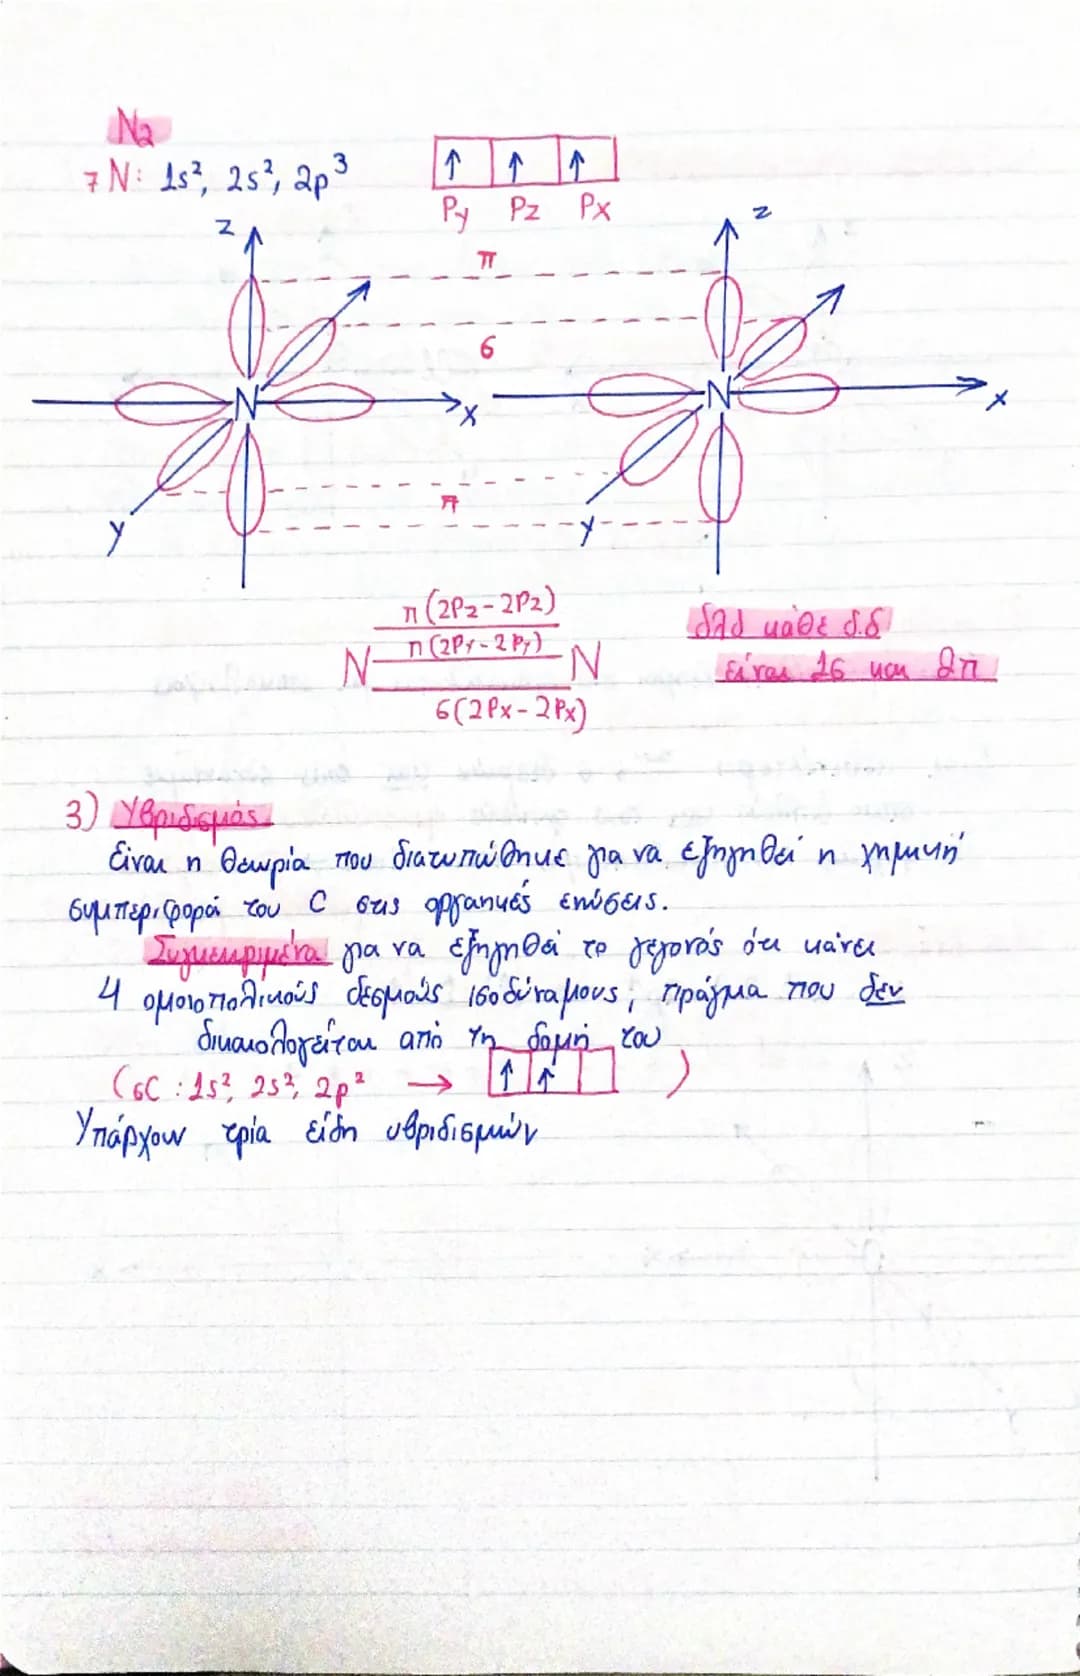 N₂
₇N: 1s², 2s², 2p³
↑ ↑ ↑
Py Pz Px
z z
π
σ
N x N x
π
y y
π(2Pz-2Pz)
π(2Py-2Py)
N N
σ(2Px-2Px)
δλδ κάθε δ.δ
είναι 1σ και 2π
3) Υβριδισμός
Είναι η θεωρία που διατυπώθηκε για να εξηγηθεί η χημική
συμπεριφορά του C στις οργανικές ενώσεις.
Συγκεκριμένα για να εξηγηθεί το γεγονός ότι κάνει
4 ομοιοπολικούς δεσμούς ισοδύναμους, πράγμα που δεν
δικαιολογείται από τη δομή του
(₆C : 1s², 2s², 2p² → ↑ ↑ )
Υπάρχουν τρία είδη υβριδισμών